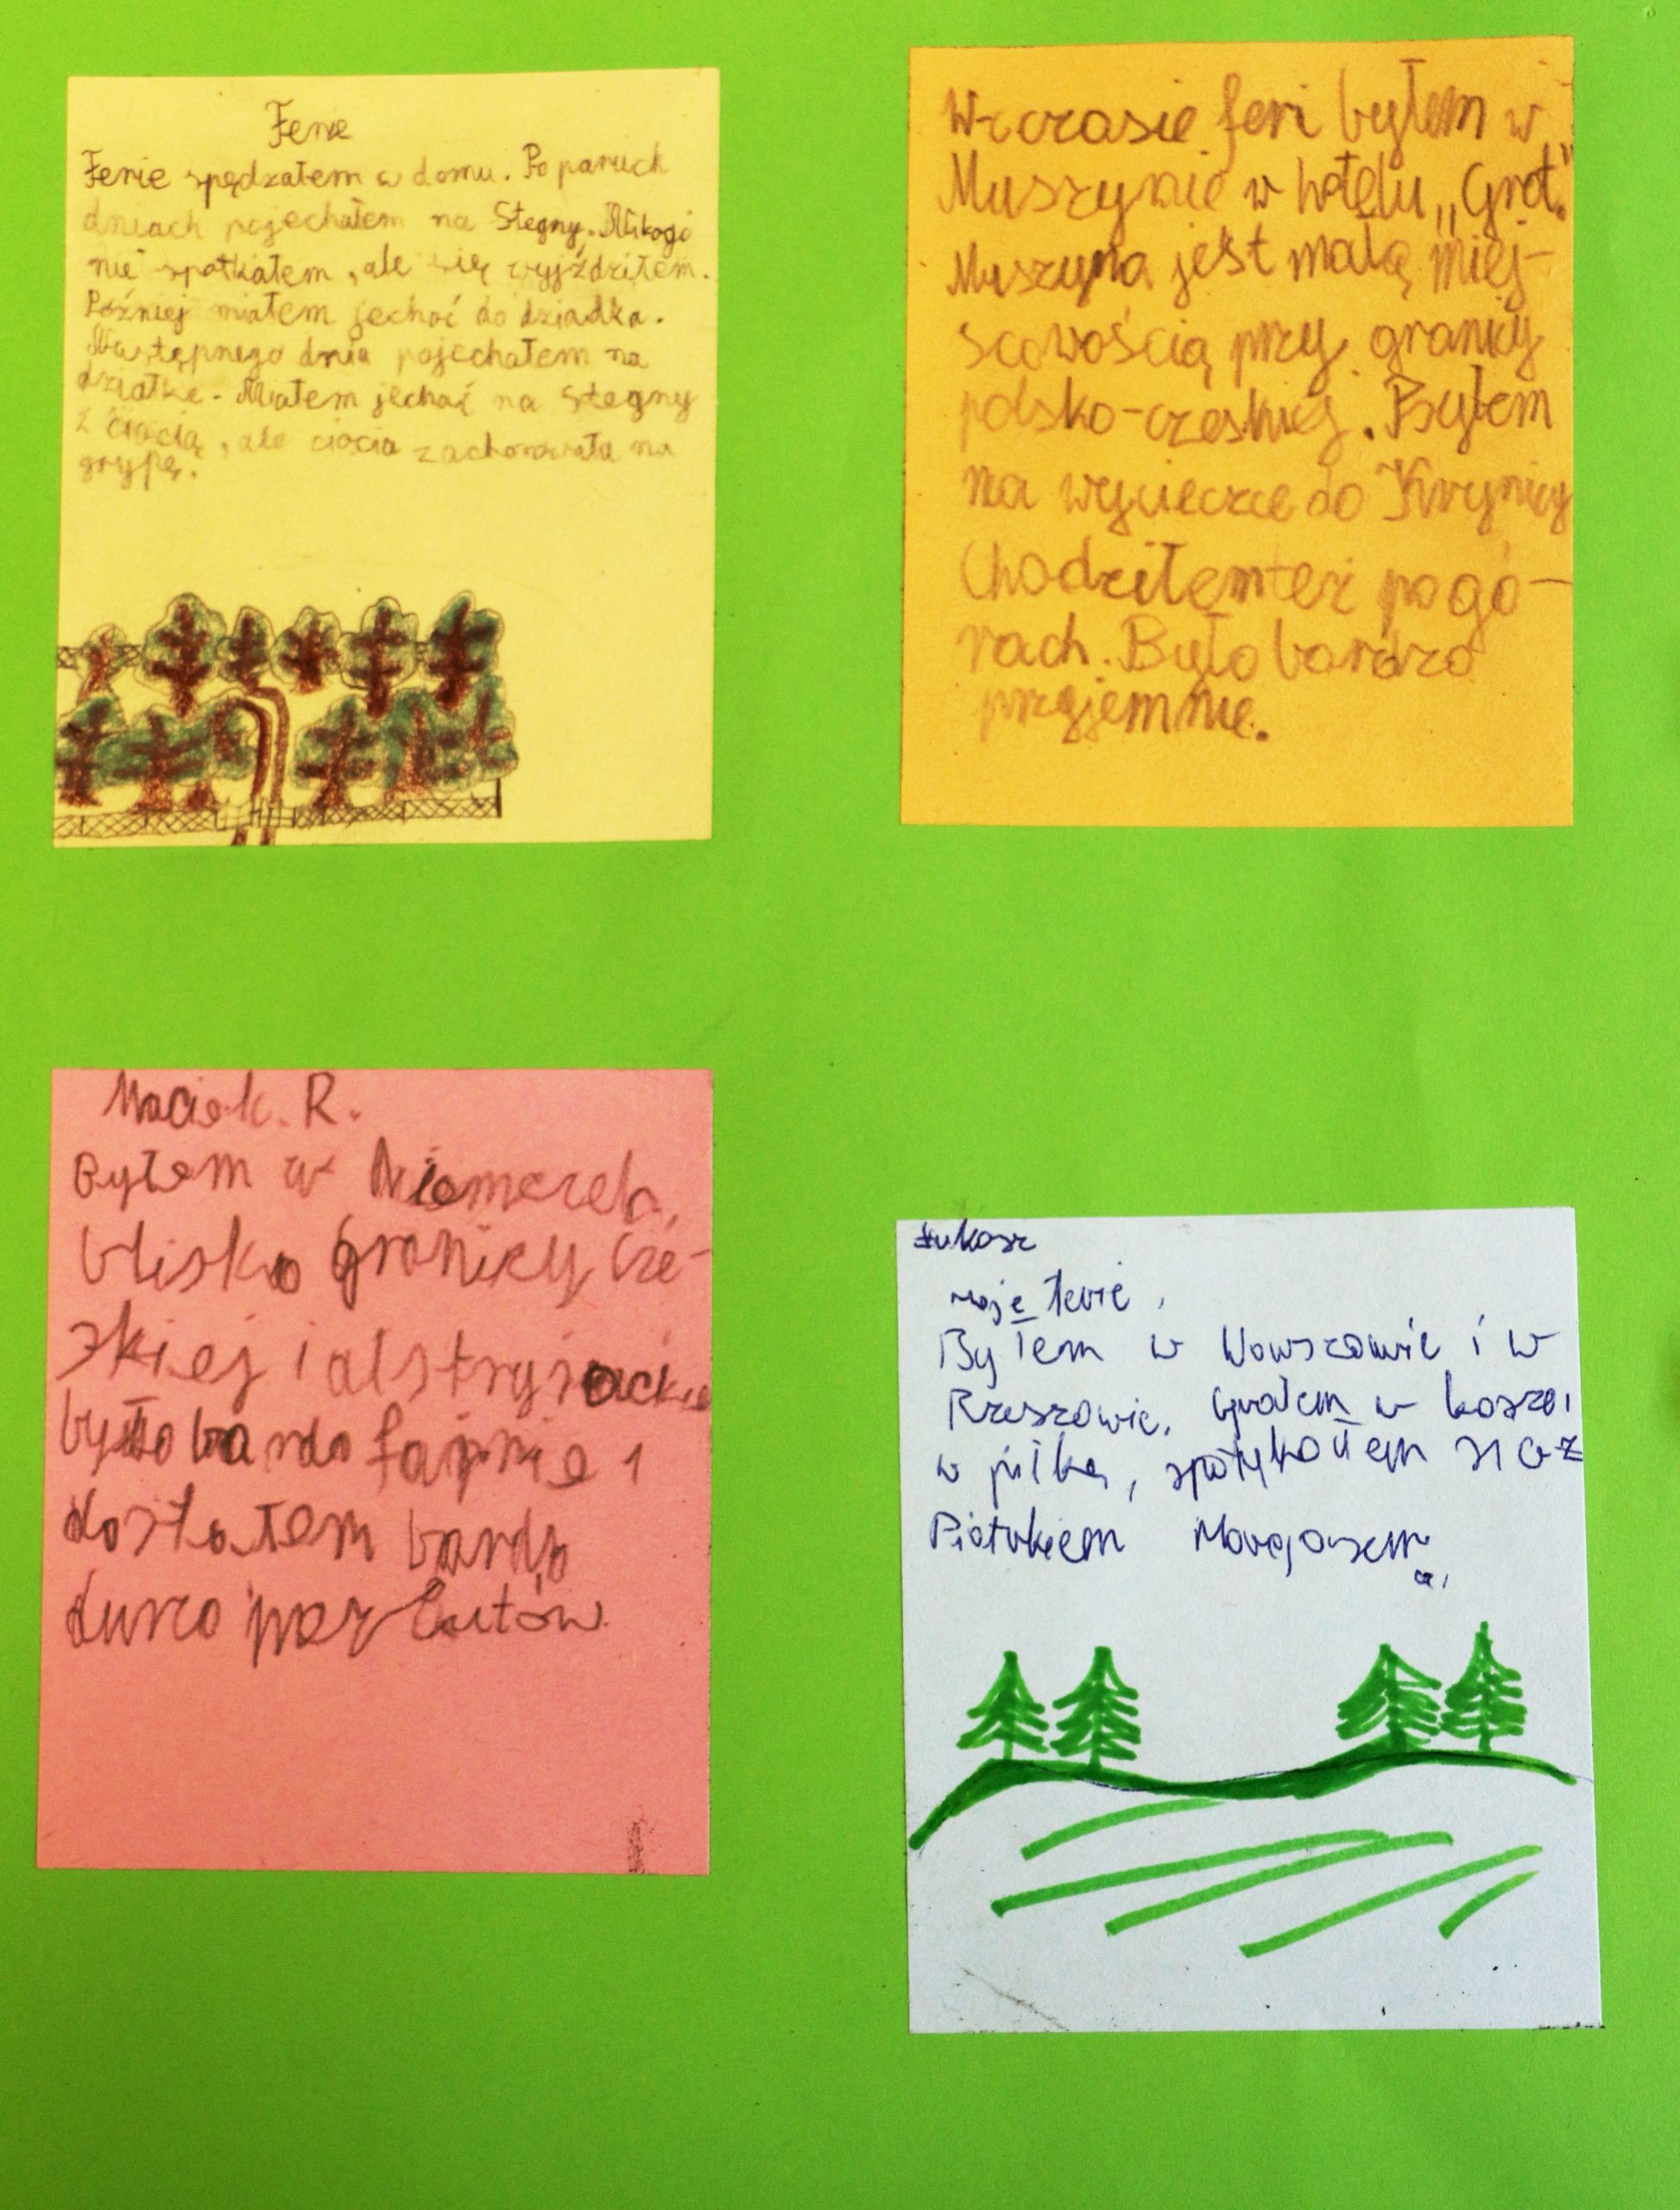 Ferie
Ferie spędzałem w domu. Po paruch
dniach pojechałem na Stegny. Nikogo
nie spotkałem, ale się wyjździłem.
Później miałem jechać do dziadka.
Następnego dnia pojechałem na
działkę. Miałem jechać na Stegny
z ciocią, ale ciocia zachorowała na
grypę.
W czasie feri byłem w
Muszynie w hotelu „Grot”.
Muszyna jest małą miej-
scowością przy granicy
polsko-czeskiej. Byłem
na wycieczce do Krynicy
Chodziłem też po gó-
rach. Było bardzo
przyjemnie.
Maciek. R.
Byłem w Niemczech,
blisko granicy Cze-
skiej i
było bardo fajnie i
dostałem bardo
dużo
Łukasz
moje ferie.
Byłem w Warszawie i w
Rzeszowie. Grałem w kosza,
w piłkę, spotykałem się z
Piotrkiem